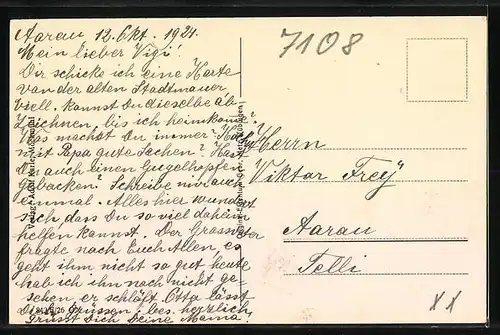 Aarau 12. Okt. 1921.
Mein lieber Vigi!
Dir schicke ich eine Karte
von der alten Stadtmauer,
viell. kannst du dieselbe ab
zeichnen, bis ich heimkomme.
Was machst Du immer? Hast
mit Papa gute Sachen? Hast
Du auch einen Gugelhopfen
gebacken. Schreibe mir auch
einmal. Alles hier wundert
sich, dass Du so viel daheim
helfen kannst. Der Grossvater
fragte nach Euch Allen, es
geht ihm nicht so gut heute
hab ich ihn noch nicht ge-
sehen er schläft. Otta lässt
Dich grüssen, bes. herzlich
grüsst Dich Deine Mama!
7108
Herrn
Viktor Frey
Aarau
Telli
xx